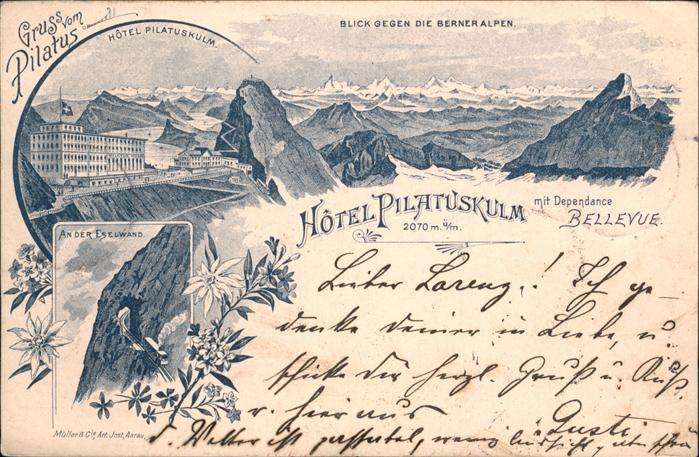 Gruss vom
Pilatus
HÔTEL PILATUSKULM.
BLICK GEGEN DIE BERNERALPEN.
HÔTEL PILATUSKULM
2070 m. ü/m.
mit Dependance
BELLEVUE.
AN DER ESELWAND.
Lieber Lorenz.! Ich ge-
denke deiner in Liebe, u.
schicke dir herzl. Gruß u. Kuß.
v. hier aus
Gusti
D. Wetter ist wenig aber schön
Müller & Cie, Art. Jnst, Aarau.